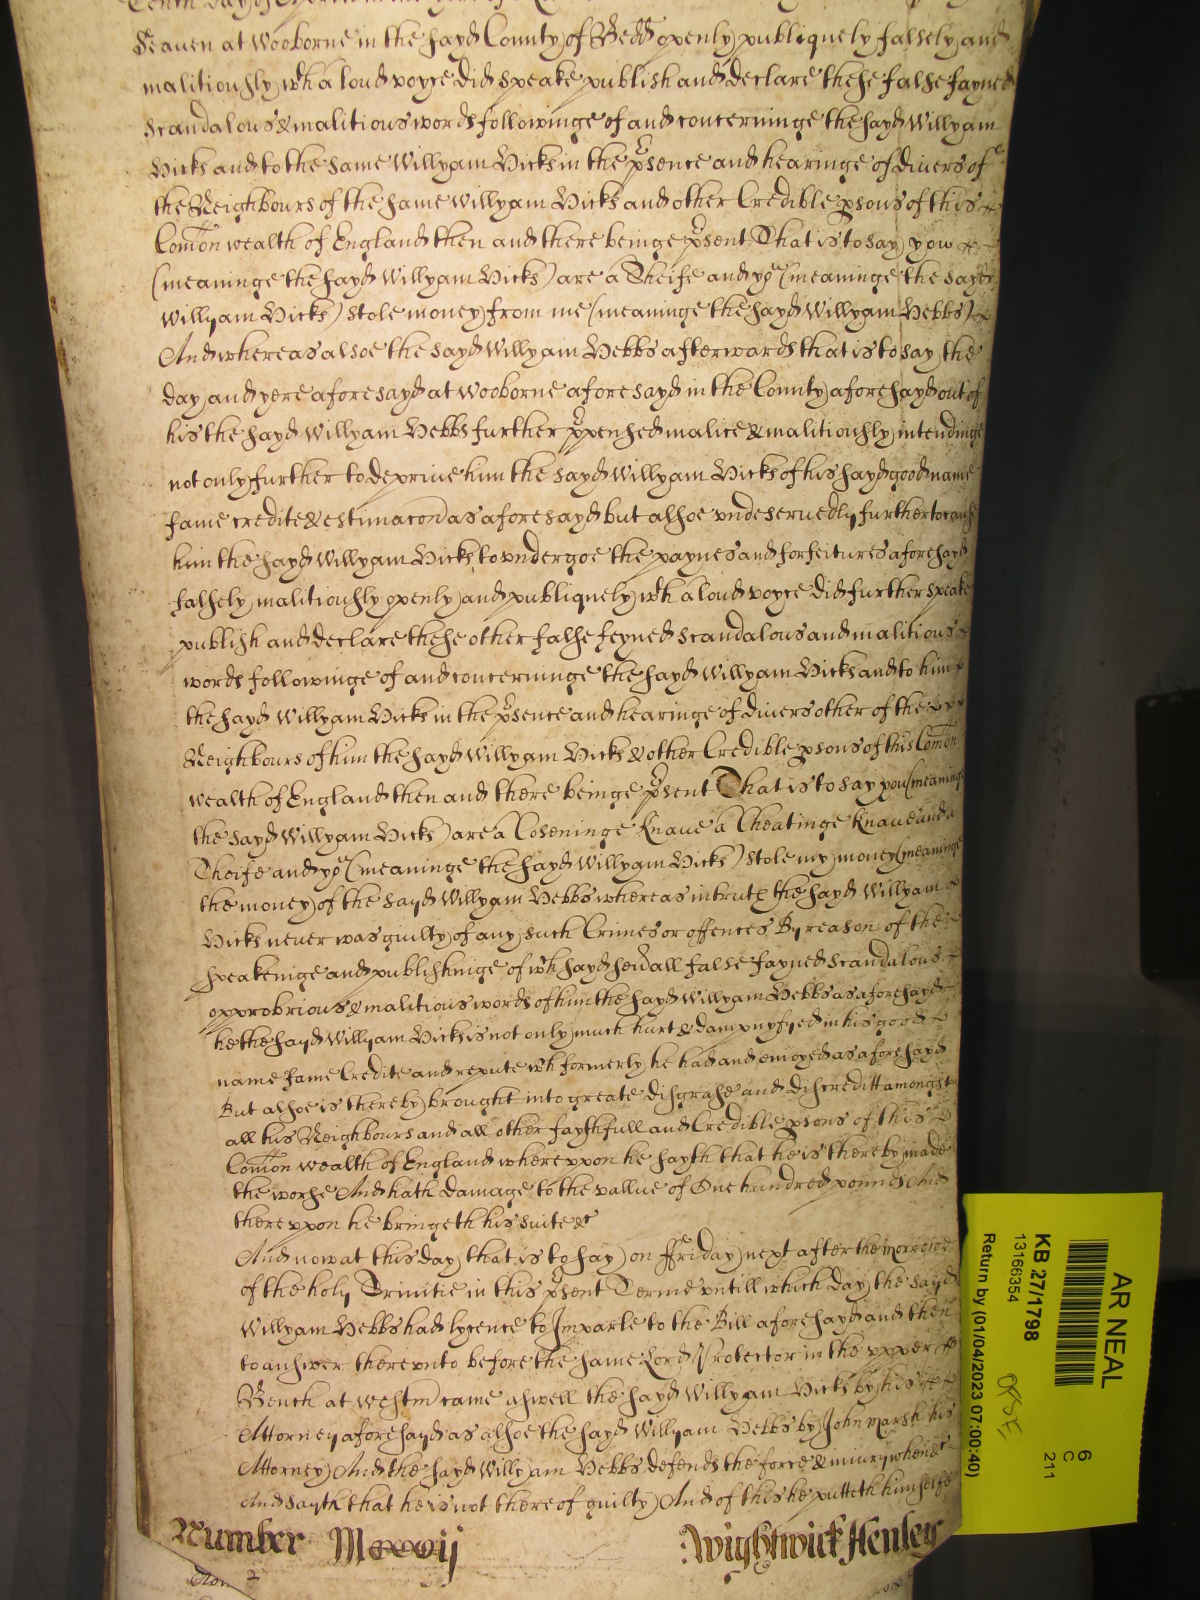 Tenth day of
Seaven at Wooborne in the sayd County of Bedd openly publiquely falsely and
malitiously wth a loud voyce did speake publish and declare these false fayned
scandalous & malitious words followinge of and concerninge the sayd Willyam
Hicks and to the same Willyam Hicks in the psence and hearinge of divers of
the Neighbours of the same Willyam Hicks and other Credible psons of this
Comon wealth of England then and there beinge psent That is to say yow
(meaninge the sayd Willyam Hicks) are a Theife and yo (meaninge the sayd
Willyam Hicks) stole money from me (meaninge the sayd Willyam Hebbs)
And whereas alsoe the sayd Willyam Hebbs afterwards that is to say the
day and yere aforesayd at Wooborne aforesayd in the County aforesayd out of
his the sayd Willyam Hebbs further ppensed malice & malitiously intendinge
not only further to deprive him the sayd Willyam Hicks of his sayd good name
fame credite & estimacon as aforesayd but alsoe undeservedly further to cause
him the sayd Willyam Hicks to undergoe the paynes and forfeitures aforesayd
falsely malitiously openly and publiquely wth a loud voyce did further speake
publish and declare these other false feyned scandalous and malitious
words followinge of and concerninge the sayd Willyam Hicks and to him
the sayd Willyam Hicks in the psence and hearinge of divers other of the
Neighbours of him the sayd Willyam Hicks & other Credible psons of this Comon
wealth of England then and there beinge psent That is to say you (meaninge
the sayd Willyam Hicks) are a Coseninge Knave a Cheatinge Knave and a
Theife and yo (meaninge the sayd Willyam Hicks) stole my money (meaninge
the money of the sayd Willyam Hebbs whereas in truth the sayd Willyam
Hicks never was guilty of any such Crimes or offences By reason of the
speakeinge and publishinge of wch sayd sevall false fayned scandalous
opprobrious & malitious words of him the sayd Willyam Hebbs as aforesayd
he the sayd Willyam Hicks is not only much hurt & dampnyfyed in his good
name fame Credite and repute wch formerly he had and enioyed as aforesayd
But alsoe is thereby brought into greate disgrase and discreditt amongst
all his Neighbours and all other faythfull and Credible psons of this
Comon wealth of England whereuppon he sayth that he is thereby made
the worse And hath damage to the vallue of One hundred pounds And
thereuppon he bringeth his suite &c
And now at this day that is to say on ffriday next after the morrowe
of the holy Trinitie in this psent Terme untill which day the sayd
Willyam Hebbs had lycence to Imparle to the Bill aforesayd and then
to answer thereunto before the same Lord Protector in the upper
Bench at Westm came aswell the sayd Willyam Hicks by his
Attorney aforesayd as alsoe the sayd Willyam Hebbs by John Marsh his
Attorney And the sayd Willyam Hebbs defends the force & iniury when &c
And sayth that he is not thereof guilty And of this he putteth himselfe
Number Mxxxij Wightwick Henley
2
AR NEAL
KB 27/1798
13166354
Return by (01/04/2023 07:00:40)
6
C
211